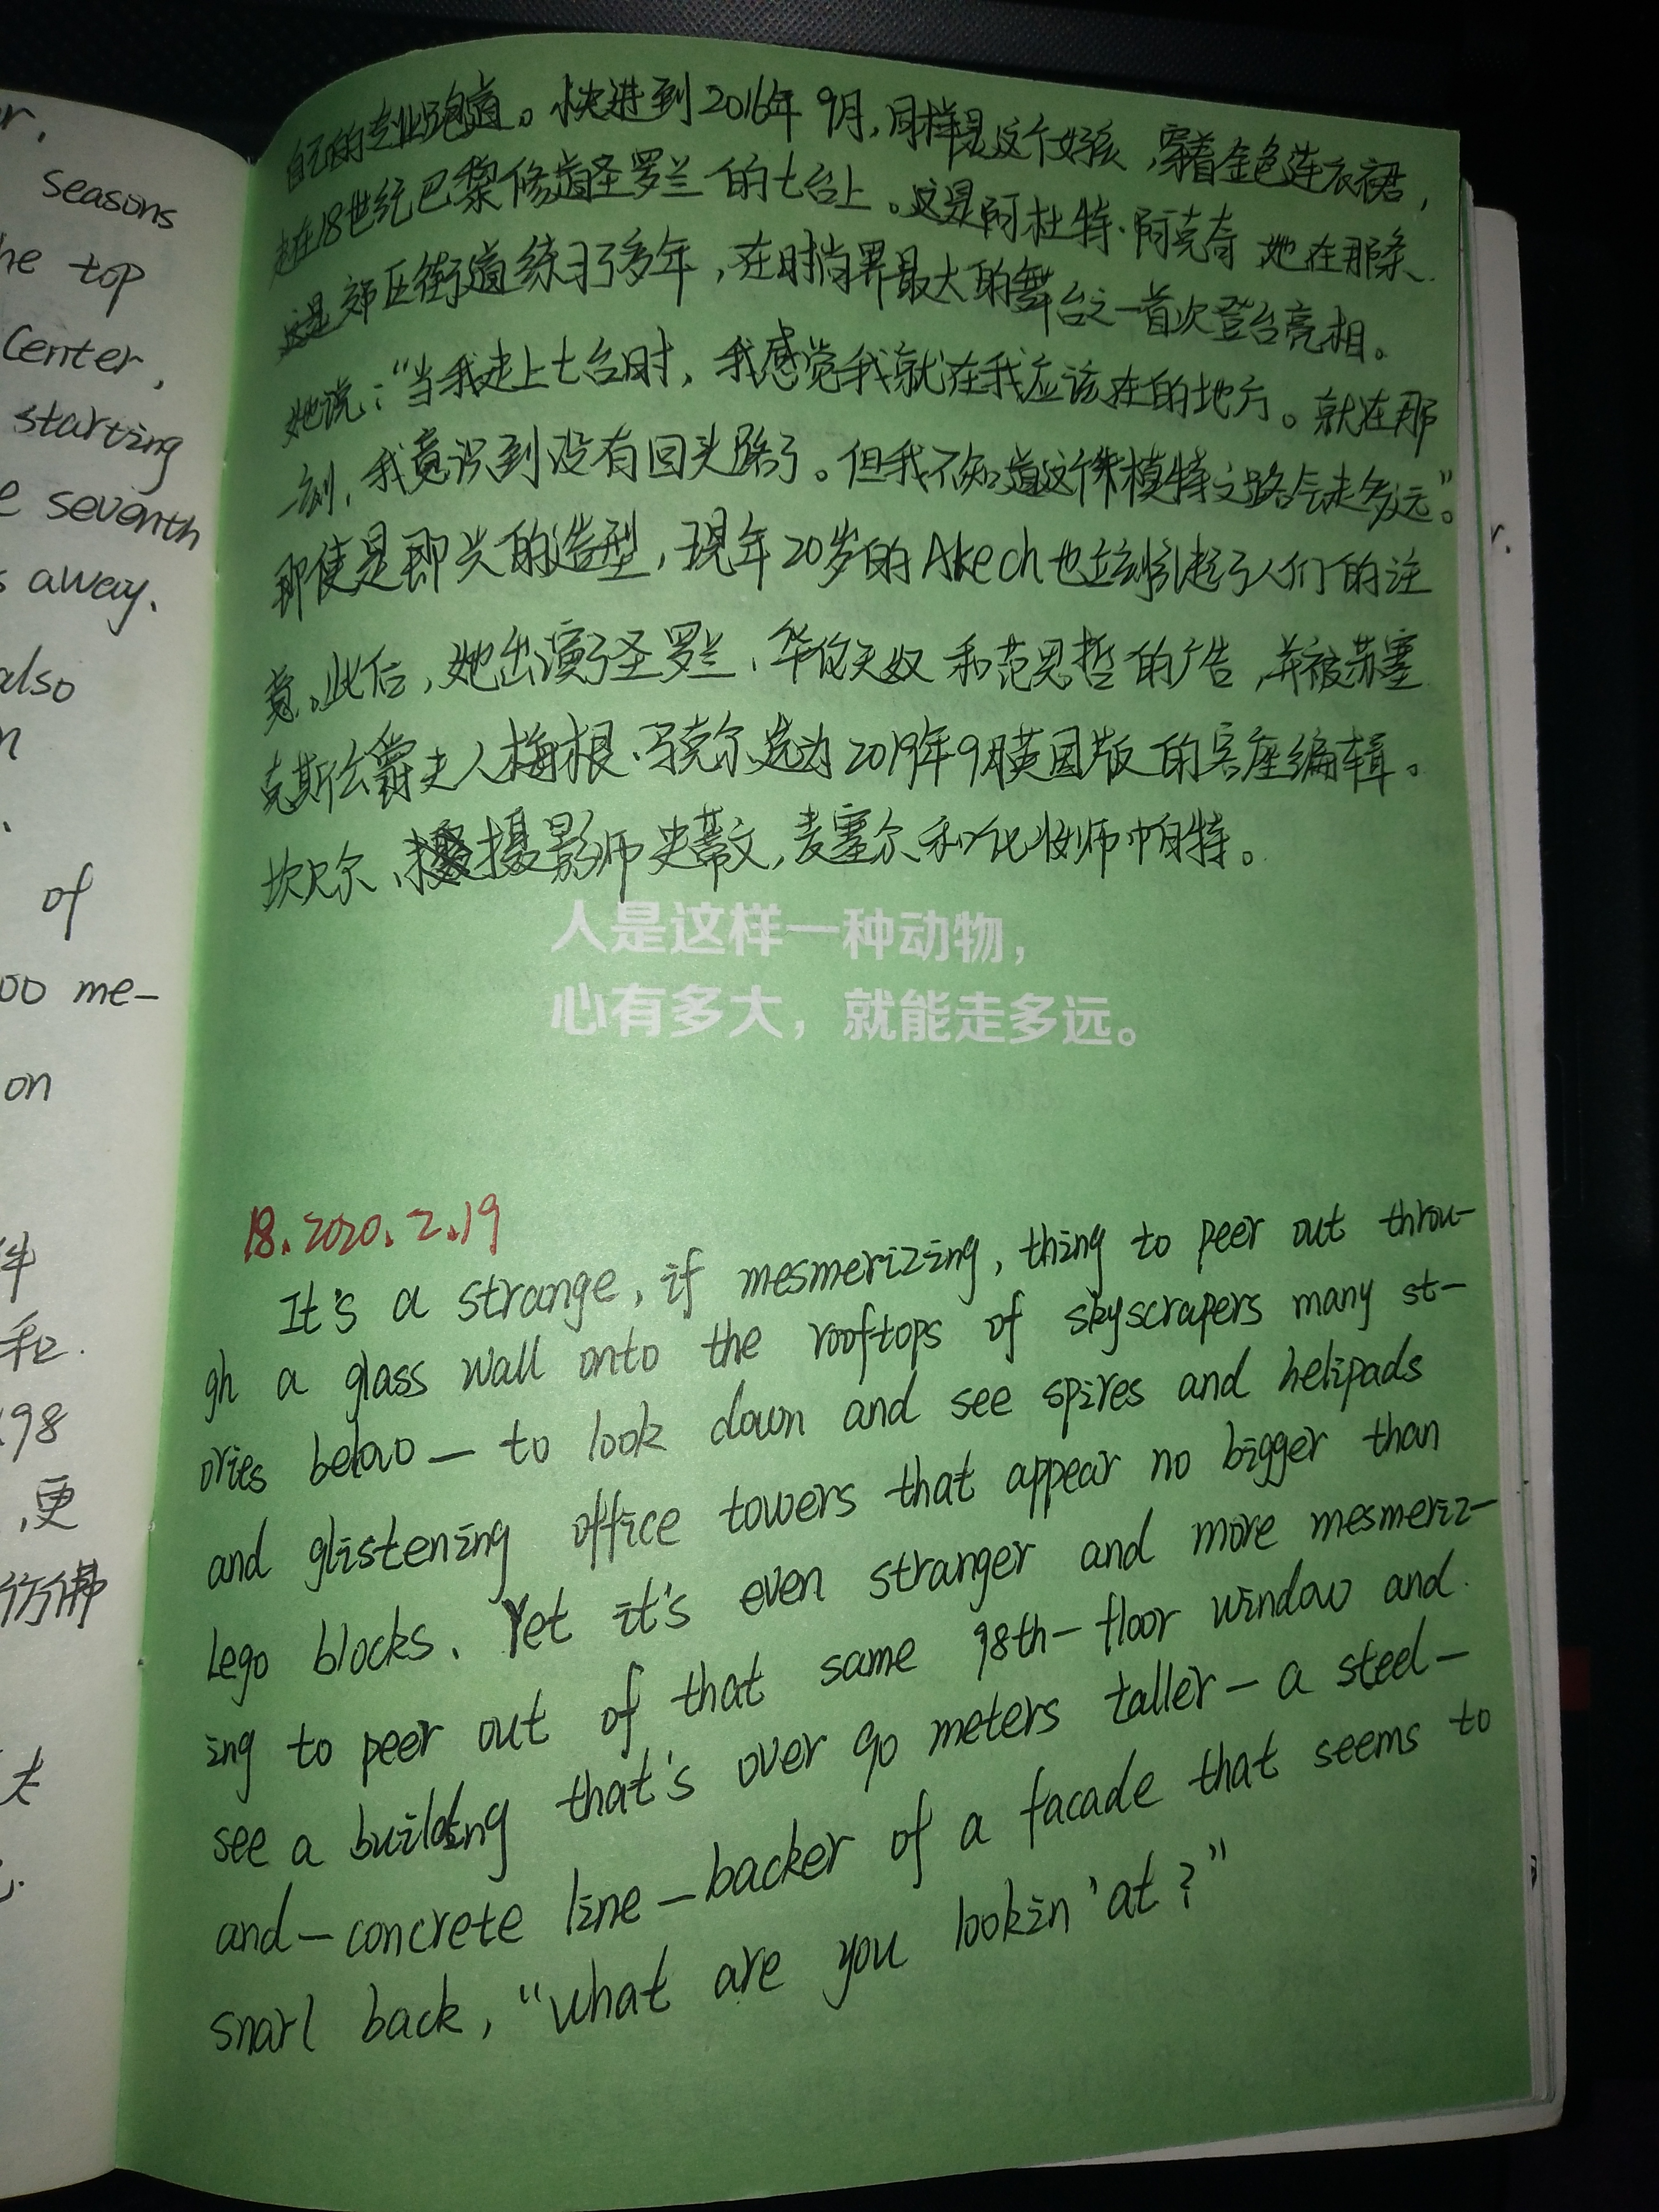 r,
seasons
he top
Center,
starting
e seventh
s away.
also
n
of
00 me-
on
件
和.
98
,更
仿佛
夫
自己的专业跑道。快进到2016年9月,同样是这个女孩,穿着金色连衣裙,
走在18世纪巴黎修道圣罗兰的七台上。这是阿杜特·阿克奇 她在那条
郊区街道练习了多年,在时尚界最大的舞台之一首次登台亮相。
她说:“当我走上七台时,我感觉我就在我应该在的地方。就在那
一刻,我意识到没有回头路了。但我不知道这个模特之路会走多远。”
即使是即兴的造型,现年20岁的Akech也立刻引起了人们的注
意。此后,她出演了圣罗兰、华伦天奴和范思哲的广告,并被苏塞
克斯公爵夫人梅根·马克尔选为2019年9月英国版的客座编辑。
坎贝尔、摄影师史蒂文,麦塞尔和化妆师帕特。
人是这样一种动物,
心有多大,就能走多远。
18.2020.2.19
It's a strange, if mesmerizing, thing to peer out throu-
gh a glass wall onto the rooftops of skyscrapers many st-
ories below — to look down and see spires and helipads
and glistening office towers that appear no bigger than
Lego blocks. Yet it's even stranger and more mesmeriz-
ing to peer out of that same 98th-floor window and
see a building that's over 90 meters taller — a steel-
and-concrete line-backer of a facade that seems to
snarl back, "what are you lookin' at?"